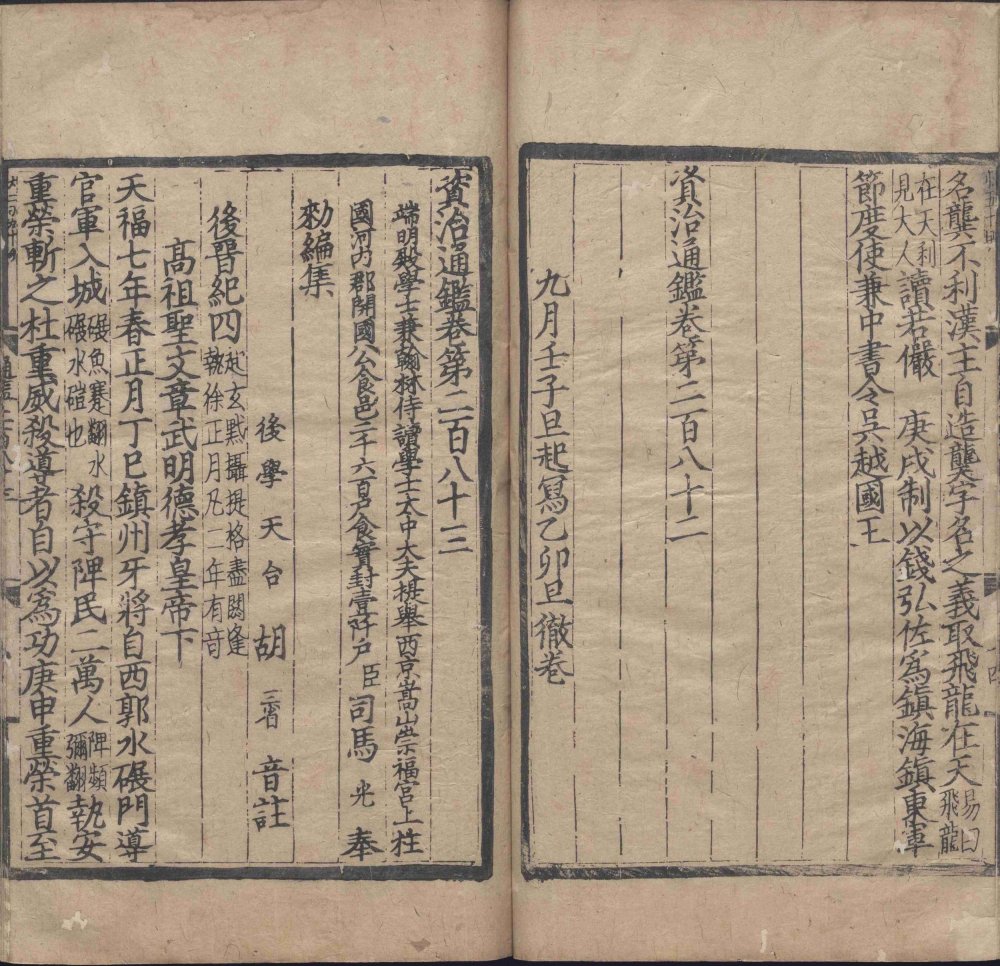 名龑不利漢主自造龑字名之義取飛龍在天易曰飛龍
在天利見大人讀若儼 庚戌制以錢弘佐爲鎮海鎮東軍
節度使兼中書令吳越國王
資治通鑑卷第二百八十二
九月壬子旦起寫乙卯旦徹卷
資治通鑑卷第二百八十三
端明殿學士兼翰林侍讀學士太中大夫提舉西京嵩山崇福宮上柱
國河內郡開國公食邑二千六百戶食實封壹阡戶臣司馬光奉
勑編集
後學天台胡三省音註
後晉紀四起玄黓攝提格盡閼逢執徐正月凡二年有音
高祖聖文章武明德孝皇帝下
天福七年春正月丁巳鎮州牙將自西郭水碾門導
官軍入城碾魚蹇翻水碾水磑也殺守陴民二萬人陴頻彌翻執安
重榮斬之杜重威殺導者自以爲功庚申重榮首至